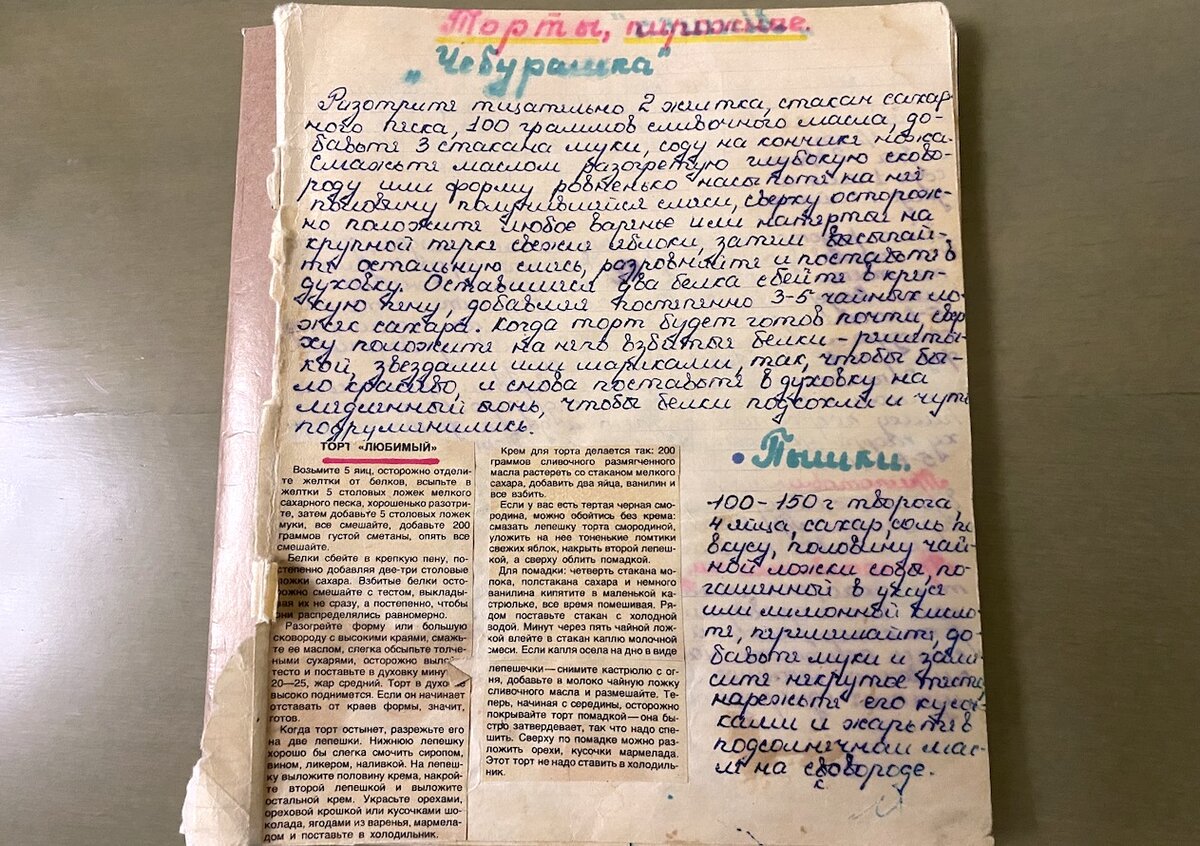 Торты, пирожные.
„Чебурашка"
Разотрите тщательно 2 желтка, стакан сахар
ного песка, 100 граммов сливочного масла, до-
бавьте 3 стакана муки, соду на кончике ножа.
Смажьте маслом разогретую глубокую сково-
роду или форму ровненько насыпьте на неё
половину получившейся смеси, сверху осторож-
но положите любое варенье или натёртые на
крупной терке свежие яблоки, затем высыпай-
те остальную смесь, разровняйте и поставьте в
духовку. Оставшиеся два белка сбейте в креп-
кую пену, добавляя постепенно 3-5 чайных ло-
жек сахара. Когда торт будет готов почти свер
ху положите на него взбитые белки - решёт
кой, звездами или шариками, так, чтобы бы-
ло красиво, и снова поставьте в духовку на
медленный огонь, чтобы белки подсохли и чуть
подрумянились.
ТОРТ «ЛЮБИМЫЙ»
Возьмите 5 яиц, осторожно отдели-
те желтки от белков, всыпьте в
желтки 5 столовых ложек мелкого
сахарного песка, хорошенько разотри-
те, затем добавьте 5 столовых ложек
муки, все смешайте, добавьте 200
граммов густой сметаны, опять все
смешайте.
Белки сбейте в крепкую пену, по-
степенно добавляя две-три столовые
ложки сахара. Взбитые белки осто-
рожно смешайте с тестом, выклады-
вая их не сразу, а постепенно, чтобы
они распределялись равномерно.
Разогрейте форму или большую
сковороду с высокими краями, смажь-
те ее маслом, слегка обсыпьте толче-
ными сухарями, осторожно выло
тесто и поставьте в духовку мину
20—25, жар средний. Торт в духо
высоко поднимется. Если он начинает
отставать от краев формы, значит,
готов.
Когда торт остынет, разрежьте его
на две лепешки. Нижнюю лепешку
хорошо бы слегка смочить сиропом,
вином, ликером, наливкой. На лепеш-
ку выложите половину крема, накрой-
те второй лепешкой и выложите
остальной крем. Украсьте орехами,
ореховой крошкой или кусочками шо-
колада, ягодами из варенья, мармела-
дом и поставьте в холодильник.
Крем для торта делается так: 200
граммов сливочного размягченного
масла растереть со стаканом мелкого
сахара, добавить два яйца, ванилин и
все взбить.
Если у вас есть тертая черная смо-
родина, можно обойтись без крема:
смазать лепешку торта смородиной,
уложить на нее тоненькие ломтики
свежих яблок, накрыть второй лепеш-
кой, а сверху облить помадкой.
Для помадки: четверть стакана мо-
лока, полстакана сахара и немного
ванилина кипятите в маленькой ка-
стрюльке, все время помешивая. Ря-
дом поставьте стакан с холодной
водой. Минут через пять чайной лож-
кой влейте в стакан каплю молочной
смеси. Если капля осела на дно в виде
лепешечки—снимите кастрюлю с ог-
ня, добавьте в молоко чайную ложку
сливочного масла и размешайте. Те-
перь, начиная с середины, осторожно
покрывайте торт помадкой—она бы-
стро затвердевает, так что надо спе-
шить. Сверху по помадке можно раз-
ложить орехи, кусочки мармелада.
Этот торт не надо ставить в холодиль-
ник.
• Пышки.
100-150 г творога,
4 яйца, сахар, соль по
вкусу, половину чай-
ной ложки соды, по-
гашенной в уксусе
или лимонной кисло-
те, перемешайте, до-
бавьте муки и заме-
сите некрутое тесто
нарежьте его кусо
ками и жарьте в
подсолнечном мас-
ле на сковороде.